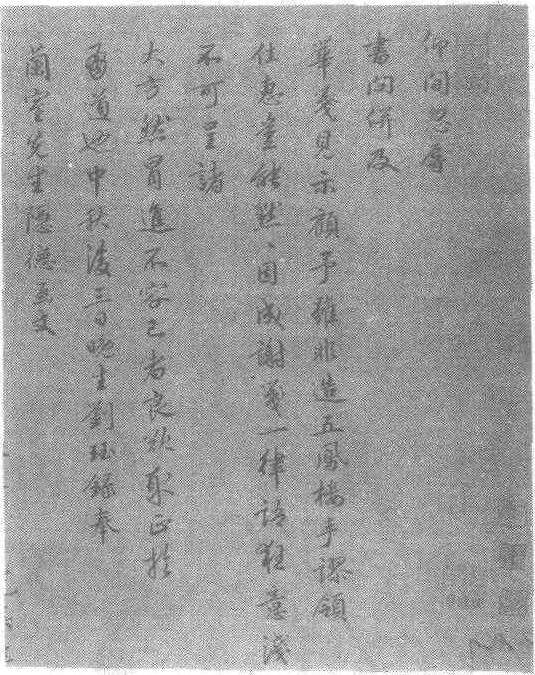 仰間忽辱
書問併及
華箋見示顧予雖非造五鳳樓手謬領
佳惠豈能默、因成謝箋一律語狂意淺
不可呈諸
大方然冒進不容已者良欲取正於
有道也中秋後三日晚生劉珏錄奉
蘭室先生隱德文